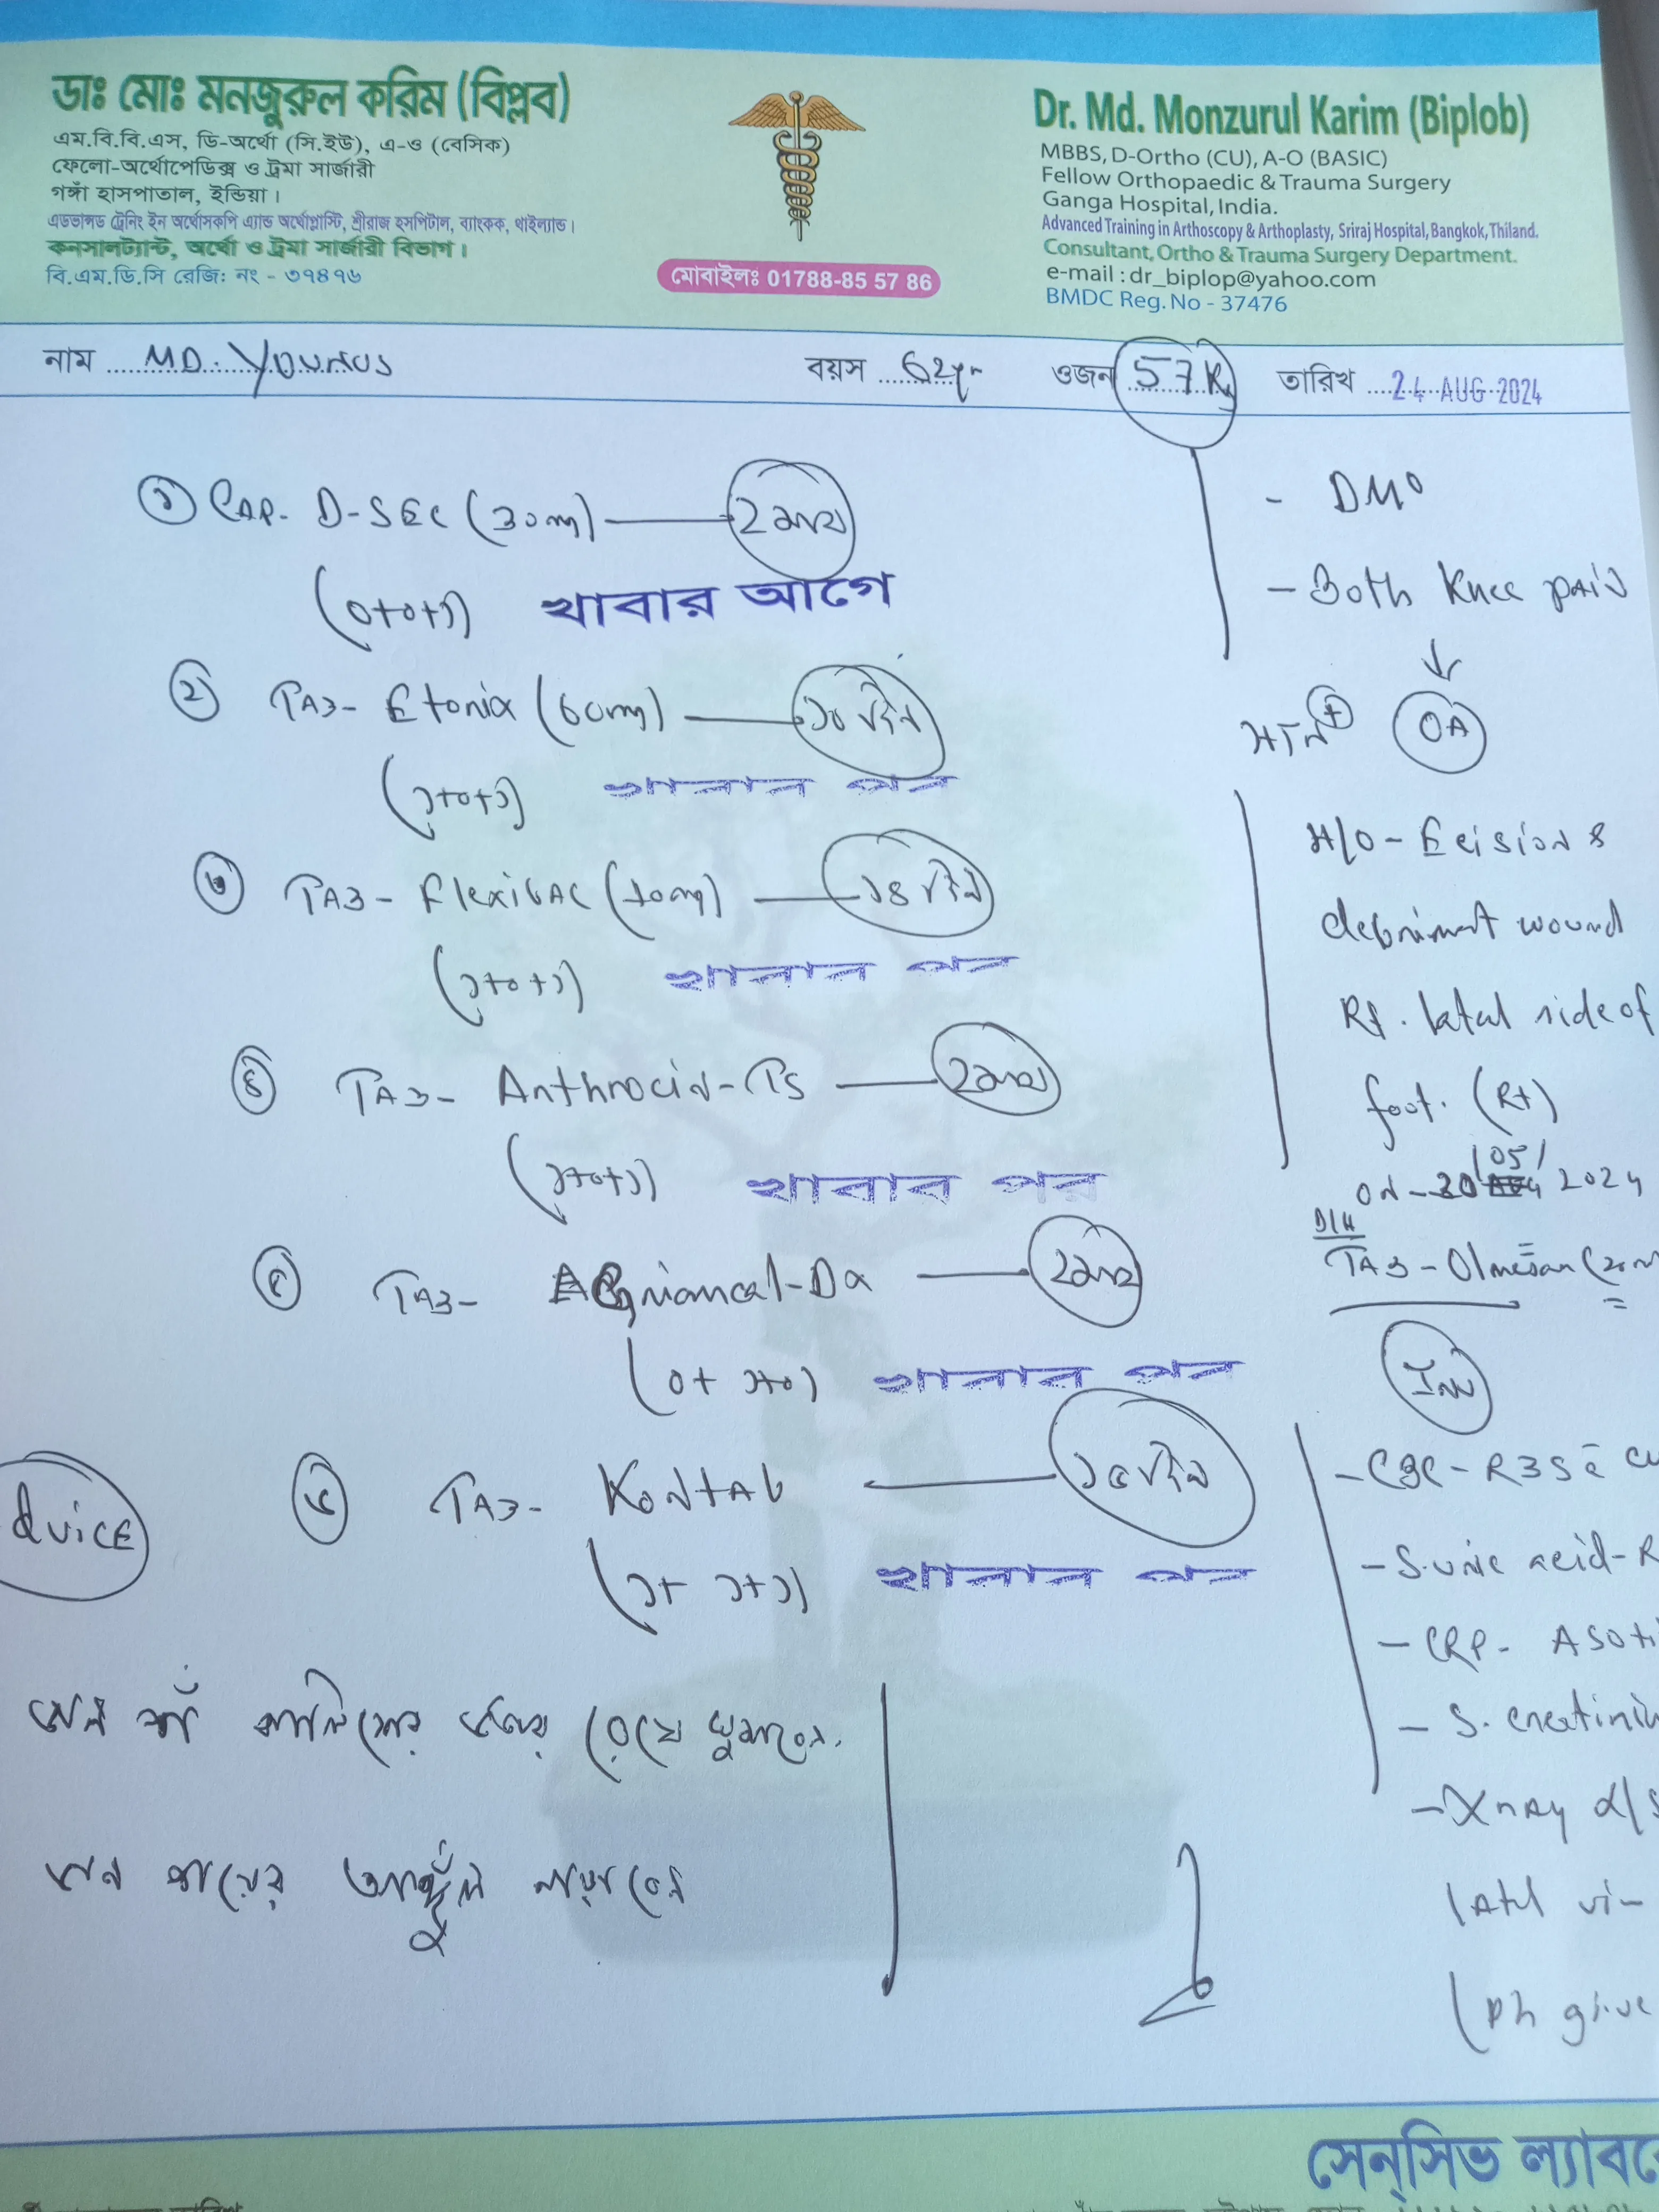 ডাঃ মোঃ মনজুরুল করিম (বিপ্লব)
এম.বি.বি.এস, ডি-অর্থো (সি.ইউ), এ-ও (বেসিক)
ফেলো-অর্থোপেডিক্স ও ট্রমা সার্জারী
গঙ্গাঁ হাসপাতাল, ইন্ডিয়া।
এডভান্সড ট্রেনিং ইন অর্থোসকপি এ্যান্ড অর্থোপ্লাস্টি, শ্রীরাজ হসপিটাল, ব্যাংকক, থাইল্যান্ড।
কনসালট্যান্ট, অর্থো ও ট্রমা সার্জারী বিভাগ।
বি.এম.ডি.সি রেজি: নং - ৩৭৪৭৬
মোবাইলঃ 01788-85 57 86
Dr. Md. Monzurul Karim (Biplob)
MBBS, D-Ortho (CU), A-O (BASIC)
Fellow Orthopaedic & Trauma Surgery
Ganga Hospital, India.
Advanced Training in Arthoscopy & Arthoplasty, Sriraj Hospital, Bangkok, Thiland.
Consultant, Ortho & Trauma Surgery Department.
e-mail : dr_biplop@yahoo.com
BMDC Reg. No - 37476
নাম MD. YOUNUS বয়স 62yr ওজন 57 Kg তারিখ 24 AUG 2024
১ CAP- D-SEC (30mg) — 2 মাস
(0+0+১) খাবার আগে
২ TAB- Etorix (60mg) — ১০ দিন
(১+0+১) খাবার পর
৩ TAB- Flexibac (10mg) — ১৪ দিন
(১+0+১) খাবার পর
৪ TAB- Anthrocin-TS — 2 মাস
(১+0+১) খাবার পর
৫ TAB- — 2 মাস
(0+ ১+0) খাবার পর
৬ TAB- Kontab — ১৫ দিন
(১+ ১+১) খাবার পর
dvice
ডান পা বালিশের উপর রেখে ঘুমাবেন.
ডান পায়ের আঙ্গুল নাড়াবেন
- DM0
- Both Knee pain
HTN + OA
H/O - Ecision &
debriment wound
Rt. latal side of
foot. (Rt)
on - 30 /05/ 2024
D/H
TAB - Olmesan (20m
Inv
- CBC - RBS
- S. uric acid - R
- CRP - ASO ti
- S. creatinin
- Xray
latl vi-